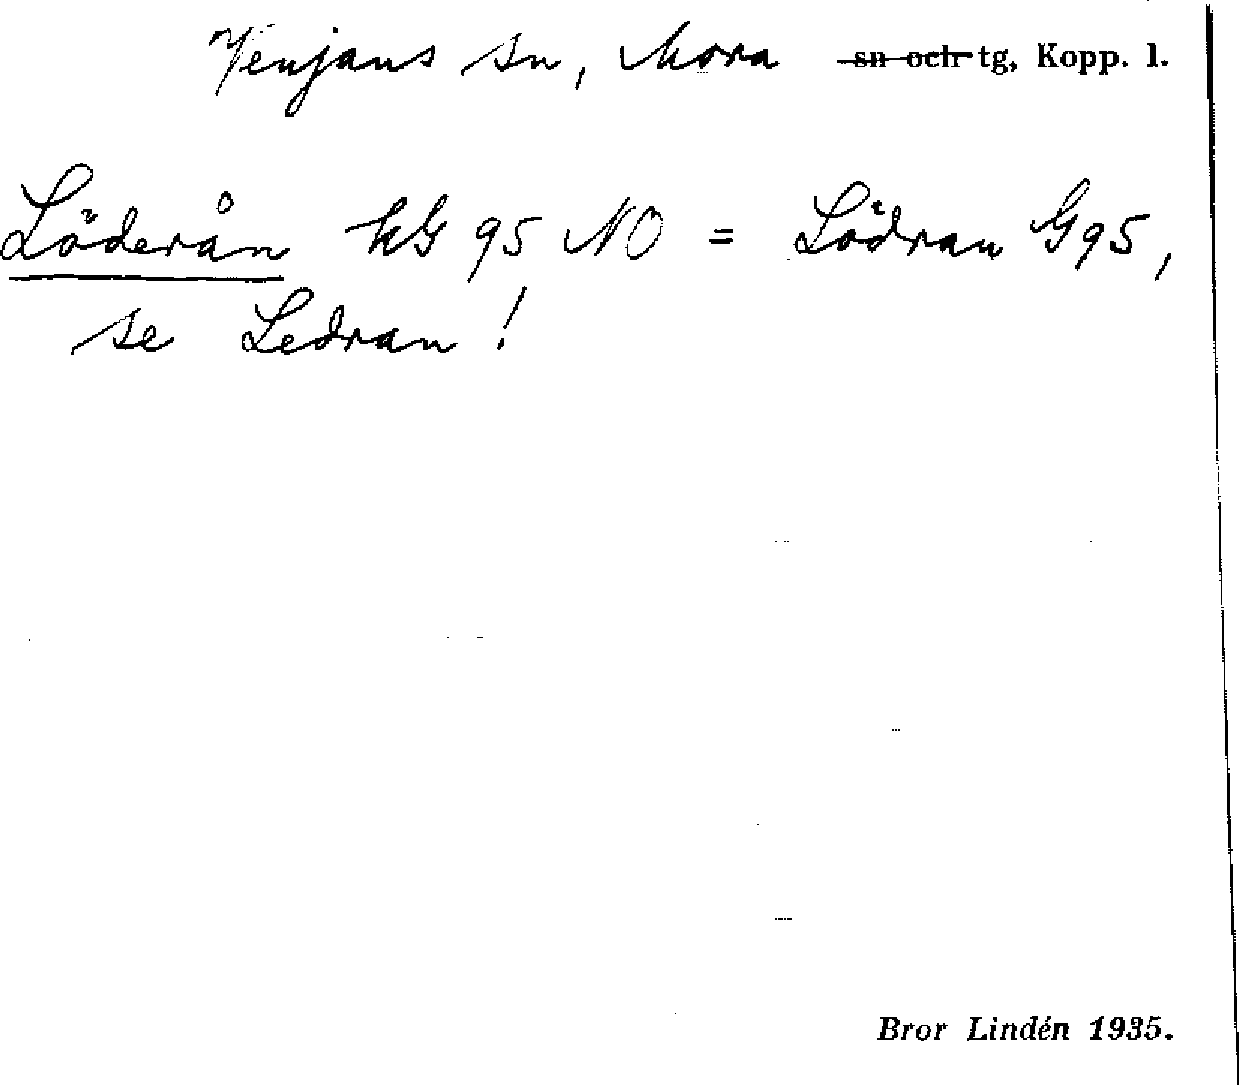 Venjans sn, Mora sn och tg, Kopp. l.
Löderån hG 95 NO = Lödran G95,
se Ledran!
Bror Lindén 1935.